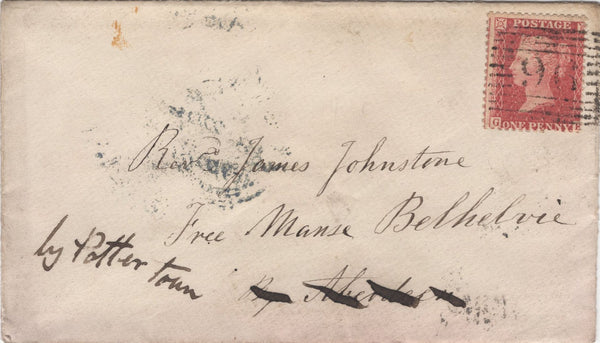 POSTAGE
ONE PENNY
Revd James Johnstone
Free Manse Belhelvie
By Aberdeen
by Potter
town